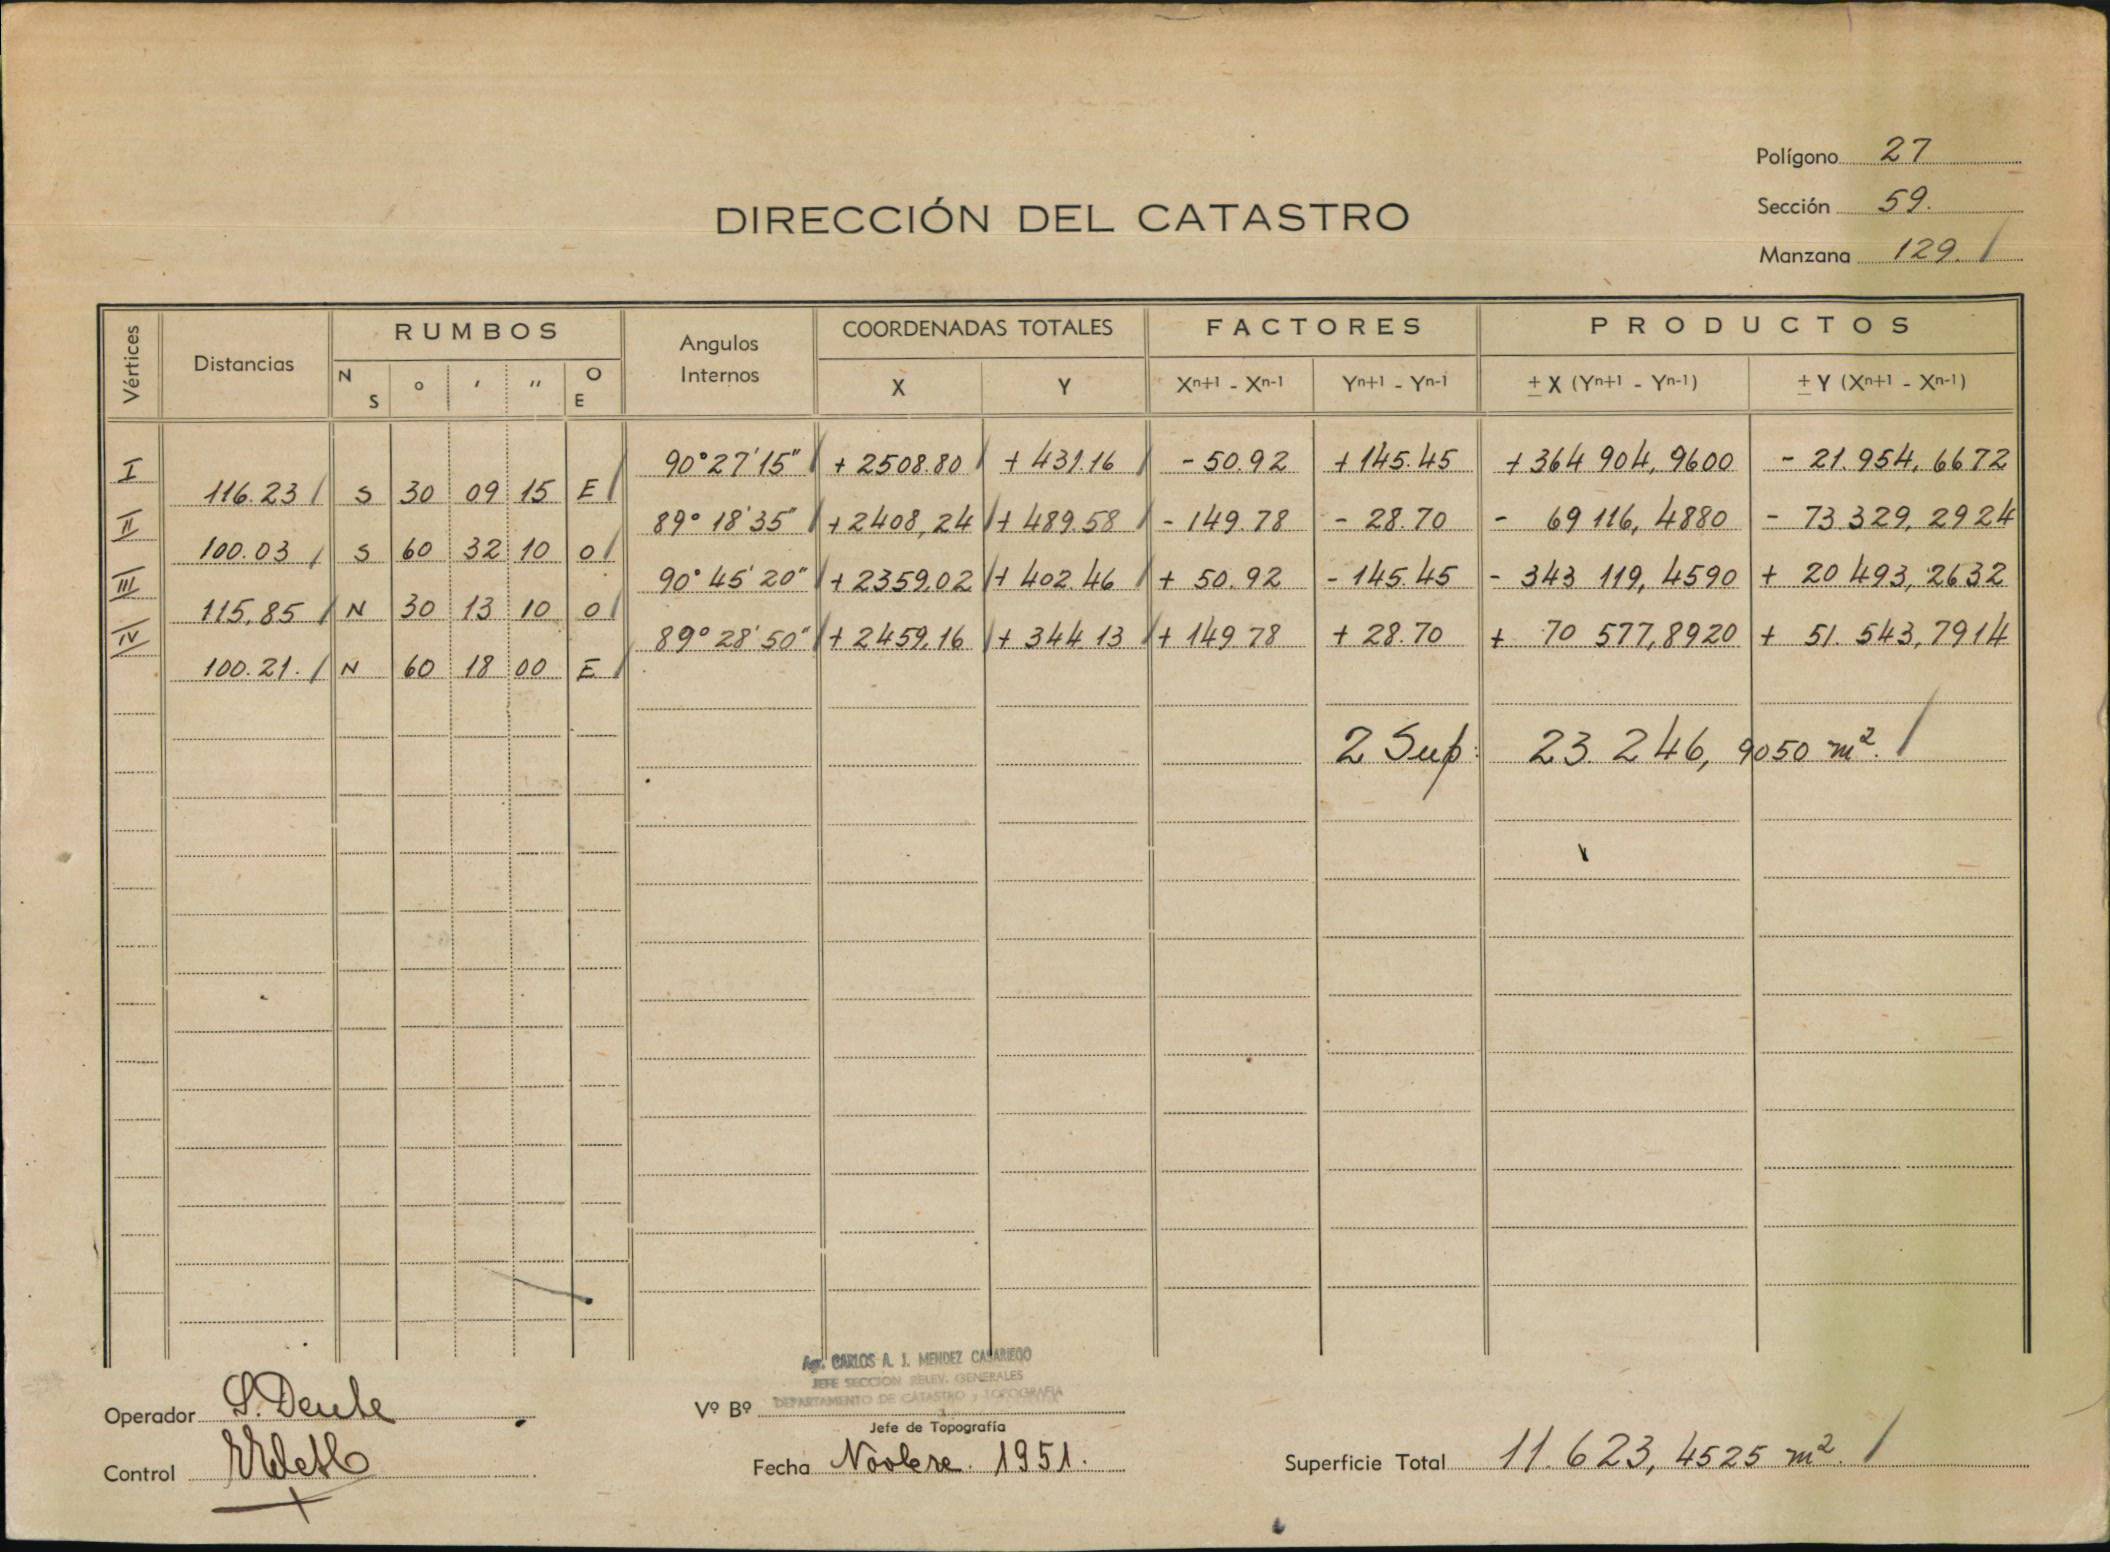 Polígono 27
Sección 59.
Manzana 129.
DIRECCIÓN DEL CATASTRO
Vértices Distancias RUMBOS Angulos Internos COORDENADAS TOTALES FACTORES PRODUCTOS
N S ° ' " O E X Y Xⁿ⁺¹ - Xⁿ⁻¹ Yⁿ⁺¹ - Yⁿ⁻¹ ± X (Yⁿ⁺¹ - Yⁿ⁻¹) ± Y (Xⁿ⁺¹ - Xⁿ⁻¹)
I 90°27'15" + 2508.80 + 431.16 - 50.92 + 145.45 + 364 904,9600 - 21.954,6672
116.23 S 30 09 15 E
II 89° 18'35" + 2408,24 + 489.58 - 149.78 - 28.70 - 69 116,4880 - 73.329,2924
100.03 S 60 32 10 O
III 90° 45' 20" + 2359,02 + 402.46 + 50.92 - 145.45 - 343 119,4590 + 20 493,2632
115,85 N 30 13 10 O
IV 89° 28' 50" + 2459,16 + 344.13 + 149.78 + 28.70 + 70 577,8920 + 51.543,7914
100.21. N 60 18 00 E
2 Sup: 23.246,9050 m².
Agr. CARLOS A. J. MENDEZ CASARIEGO
JEFE SECCION RELEV. GENERALES
DEPARTAMENTO DE CATASTRO y TOPOGRAFIA
Operador
Vº Bº
Jefe de Topografía
Control
Fecha Novbre. 1951.
Superficie Total 11.623,4525 m².